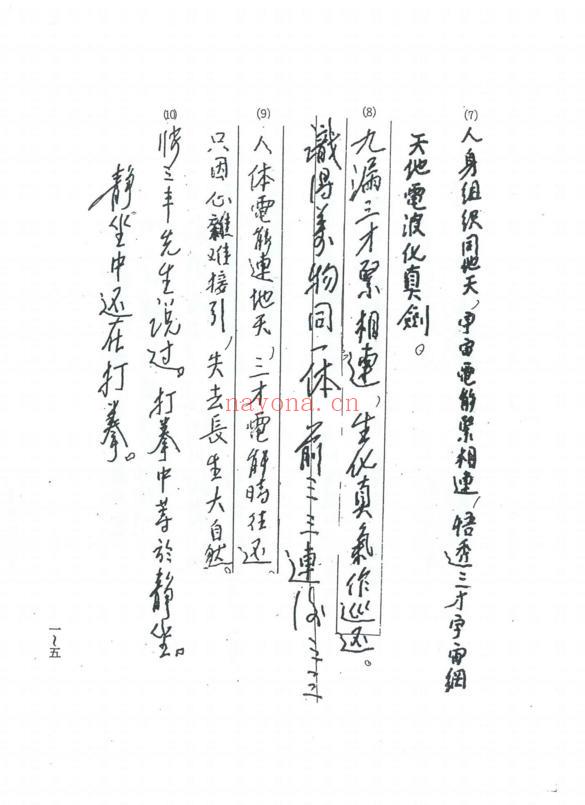 (7) 人身組织同地天，宇宙電能緊相連，悟透三才宇宙網
天地電波化真劍。
(8) 九漏三才緊相連，生化真氣作巡还。
識得萬物同一体 前三三連後三三
(9) 人体電能連地天，三才電能時往还
只因心雜难接引，失去長生大自然。
(10) 三丰先生说过。打拳中等於靜坐。
靜坐中还在打拳。
一～五
nayona.cn